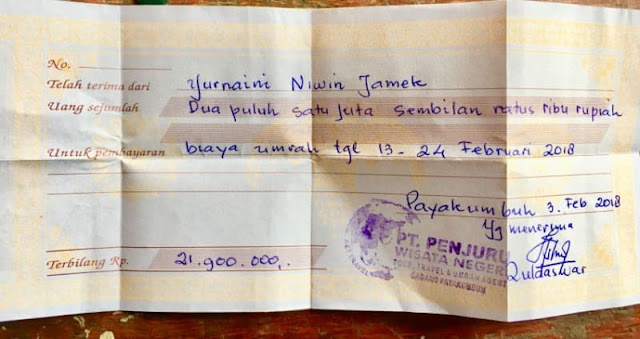 No.
Telah terima dari Yurnaini Niwin Jamek
Uang sejumlah Dua puluh satu juta sembilan ratus ribu rupiah
Untuk pembayaran biaya umrah tgl 13 - 24 Februari 2018
Payakumbuh 3. Feb 2018
Yg menerima
PT. PENJURU
WISATA NEGERI
TOUR, TRAVEL & UMRAH AGENT
CABANG PAYAKUMBUH
Quldaswar
Terbilang Rp. 21.900.000,.